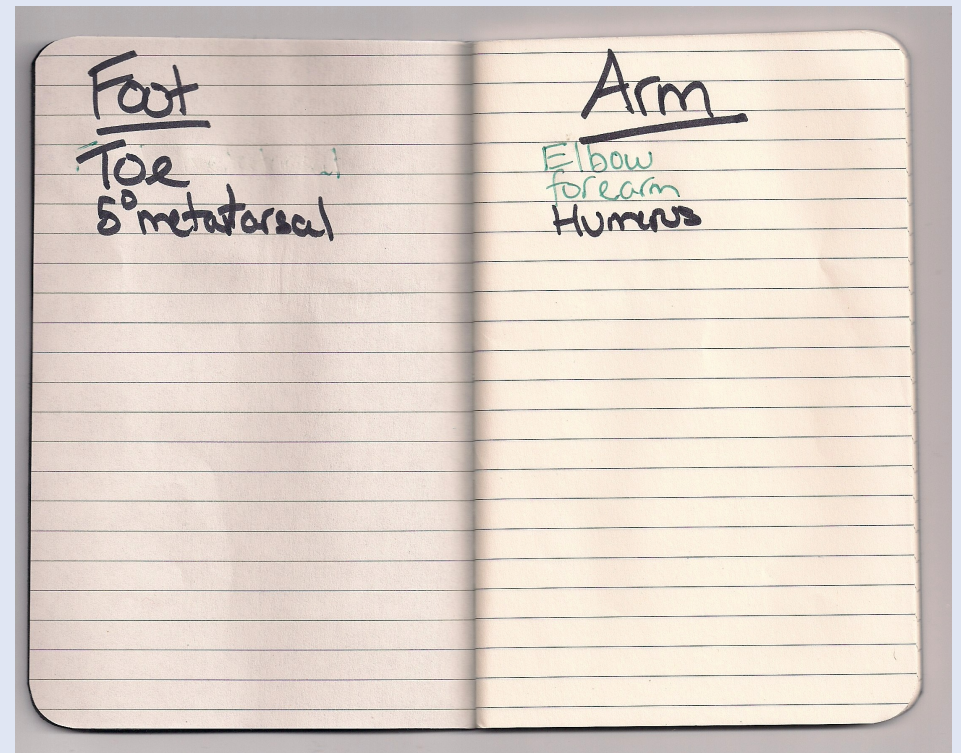 Foot
Toe
5° metatarsal
Arm
Elbow
forearm
Humerus